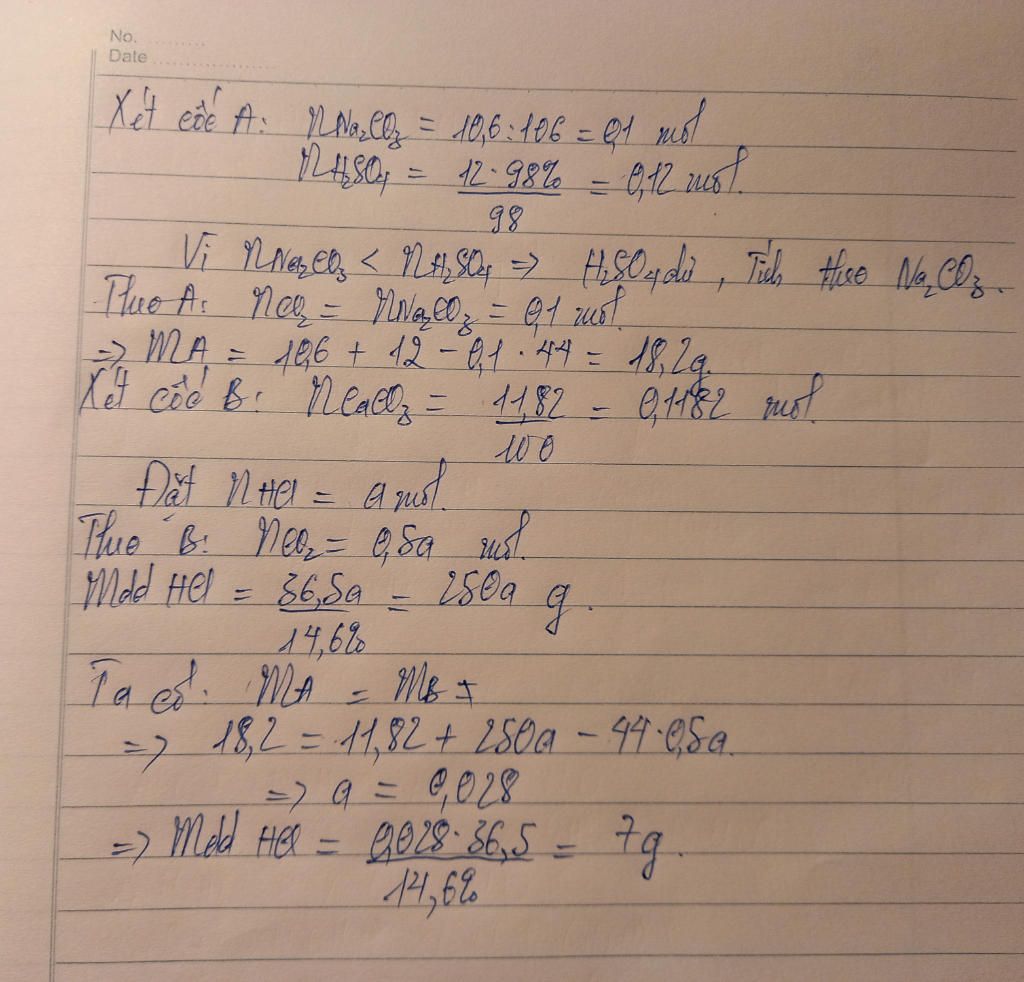 No. ..........
Date ....................
Xét cốc A: nNa₂CO₃ = 10,6:106 = 0,1 mol
nH₂SO₄ = 12·98% / 98 = 0,12 mol.
Vì nNa₂CO₃ < nH₂SO₄ => H₂SO₄ dư, Tính theo Na₂CO₃.
Theo A: nCO₂ = nNa₂CO₃ = 0,1 mol.
=> mA = 10,6 + 12 - 0,1 · 44 = 18,2g.
Xét cốc B: nCaCO₃ = 11,82 / 100 = 0,1182 mol.
Đặt nHCl = a mol.
Theo B: nCO₂ = 0,5a mol.
Mdd HCl = 36,5a / 14,6% = 250a g.
Ta có: mA = mB
=> 18,2 = 11,82 + 250a - 44·0,5a.
=> a = 0,028
=> Mdd HCl = 0,028·36,5 / 14,6% = 7g.